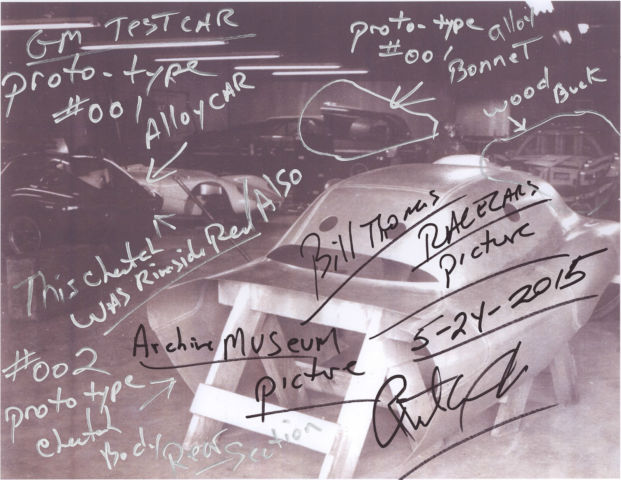 GM TEST CAR
Proto-type
#001
Alloy CAR
Proto-type alloy
#001
Bonnet
wood Buck
This cheetah
WAS Riverside Red Also
Bill Thomas
RACECARS
picture
5-24-2015
Archive MUSEUM
picture
#002
Proto type
cheetah
Body Rear Section